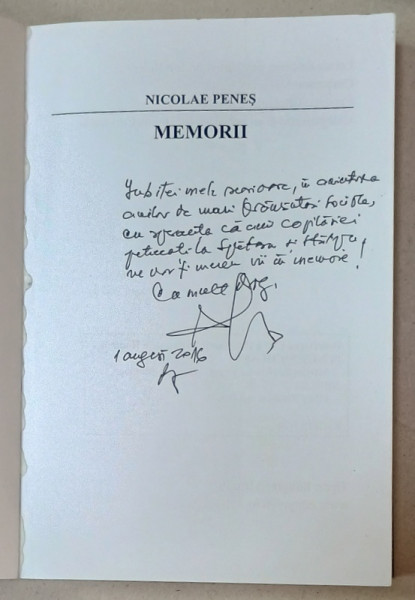 NICOLAE PENEȘ
MEMORII
Iubitei mele surioare, în amintirea
anilor de mari frământări sociale,
cu speranța că anii copilăriei
petrecuți la și
ne vor fi mereu vii în memorie!
Cu mult drag,
1 august 2016